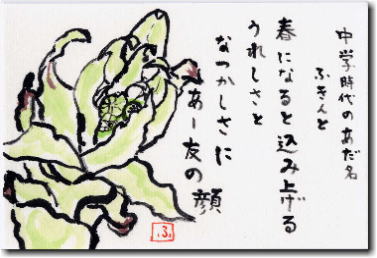 中学時代のあだ名
ふきんと
春になると込み上げる
うれしさと
なつかしさに
あー友の顔
ふ